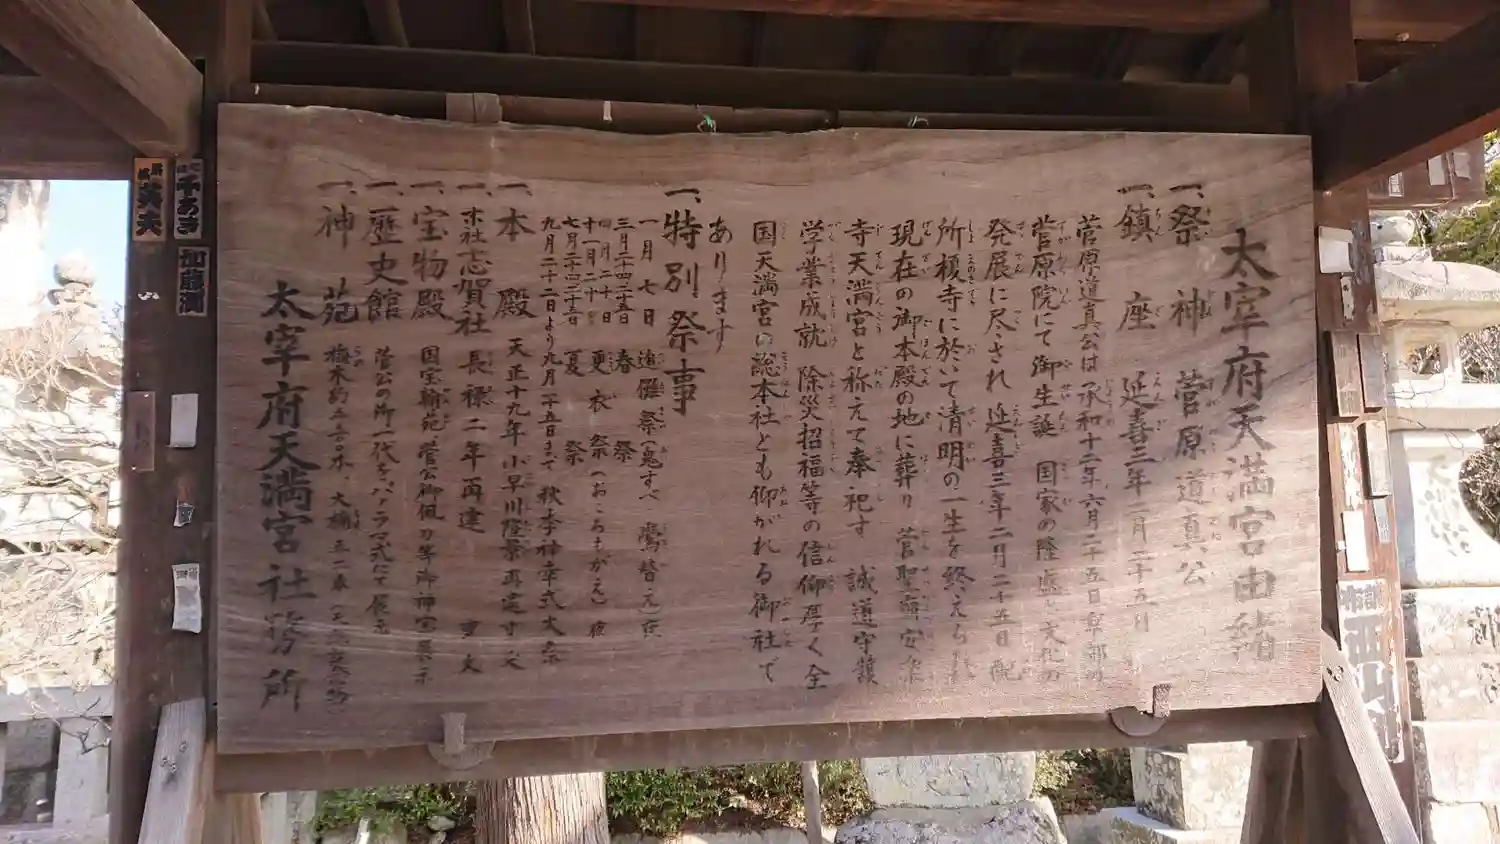 太宰府天満宮由緒
一、祭神 菅原道真公
一、鎮座 延喜三年二月二十五日
菅原道真公は承和十二年六月二十五日京都の
菅原院にて御生誕 国家の隆盛と文化の
発展に尽され 延喜三年二月二十五日配
所榎寺に於いて清明の一生を終えられ
現在の御本殿の地に葬り 菅聖廟安楽
寺天満宮と称えて奉祀す 誠道守護
学業成就 除災招福等の信仰厚く全
国天満宮の総本社とも仰がれる御社で
あります
一、特別祭事
一月七日 追儺祭(鬼すべ 鷽替え)夜
三月二四二五日 春祭
四月二十日 更衣祭(おころもがえ)夜
十一月二十日
七月二四二五日 夏祭
九月二十二日より九月二十五日まで 秋季神幸式大祭
一、本殿 天正十九年 小早川隆景再建
一、末社志賀社 長禄二年再建 重文
一、宝物殿 国宝翰苑 菅公御佩刀等御神宝展示
一、歴史館 菅公の御一代をパノラマ式にて展示
一、神苑 梅木約 大楠五一本
太宰府天満宮社務所
千あき
加藤
英夫
西山